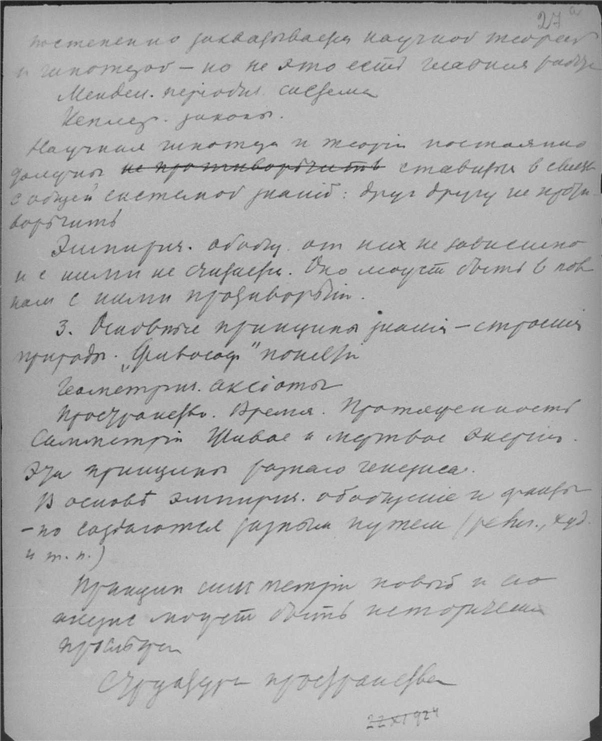 27а
постепенно захватываем научной теорией
и гипотезой – но не это есть главная работа
Мендел. періодич. система
Кеплер. законы.
Научная гипотеза и теорія постоянно
должны не противорѣчить ставиться в связь
с общей системой знаній: друг другу не проти
ворѣчить
Эмпирич. обобщ. от них не зависимо
и с ними не считаемся. Оно может быть в пол
ном с ними противорѣчіи.
3. Основные принципы знанія – строенія
природы. "Философ" понятія
Геометрич. аксіомы
Пространство. Время. Протяженность
Симметрія Живое и мертвое Энергія.
Эти принципы разнаго генезиса.
В основѣ эмпирич. обобщеніе и факты
– но создаются разным путем (религ., худ.
и т. п.)
Принцип симметріи новый и
может быть исторически
Структура пространства
22 XI 1924